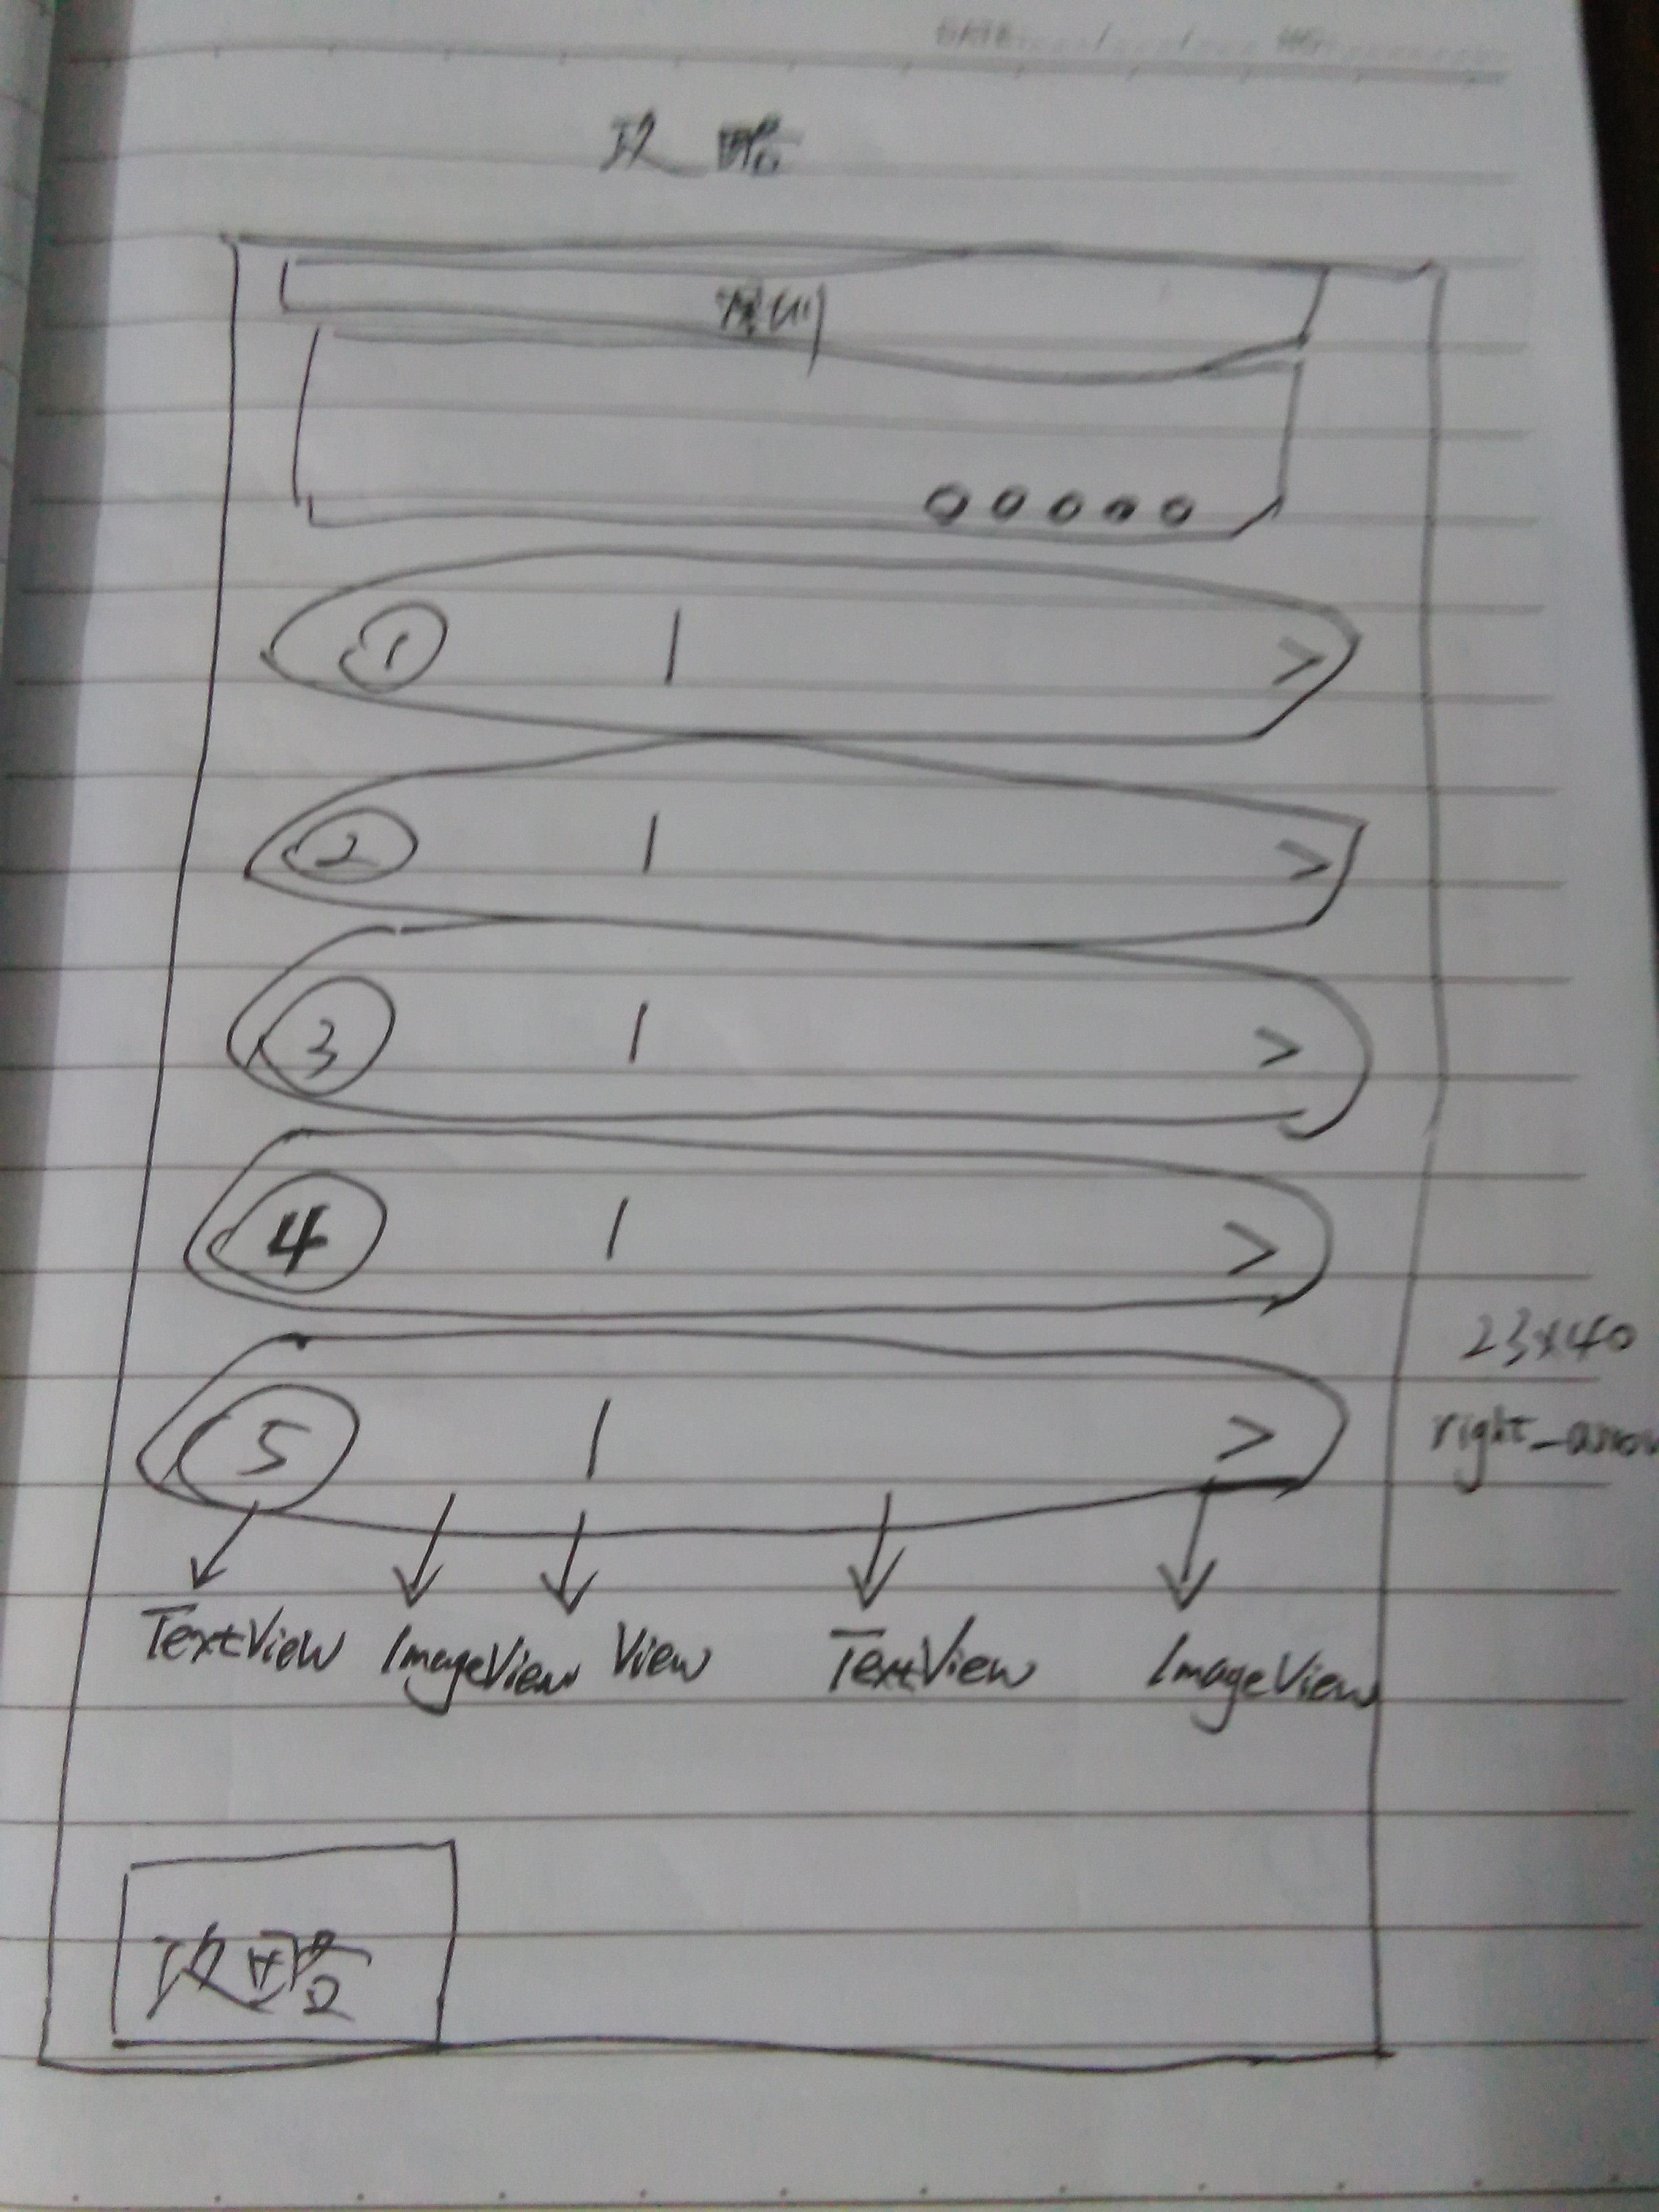 DATE / / NO.
攻略
深圳
1 | >
2 | >
3 | >
4 | >
5 | >
23x40
right_arrow
TextView ImageView View TextView ImageView
攻略